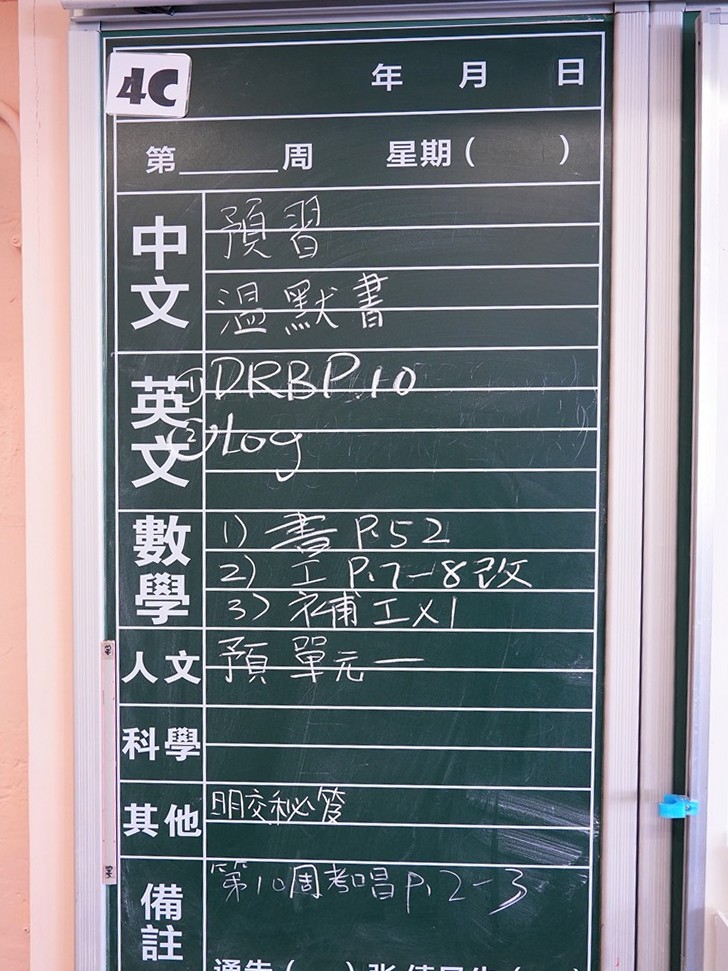 4C
年 月 日
第______周 星期( )
中文
預習
溫默書
英文
①DRBP.10
②Log
數學
1) 書 P.52
2) 工 P.7-8改
3) 補工×1
人文
預 單元一
科學
其他
明交秘管
備註
第10周考唱p.2-3
通告( )